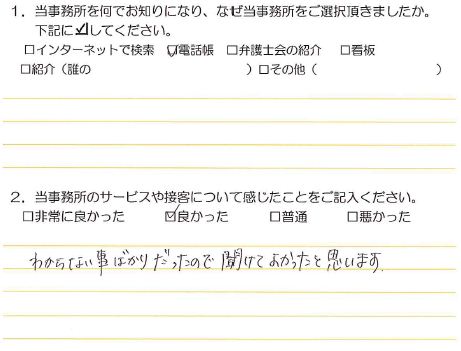 1．当事務所を何でお知りになり、なぜ当事務所をご選択頂きましたか。
下記に☑してください。
□インターネットで検索 ☑電話帳 □弁護士会の紹介 □看板
□紹介（誰の ）□その他（ ）
2．当事務所のサービスや接客について感じたことをご記入ください。
□非常に良かった ☑良かった □普通 □悪かった
わからない事ばかりだったので聞けてよかったと思います。